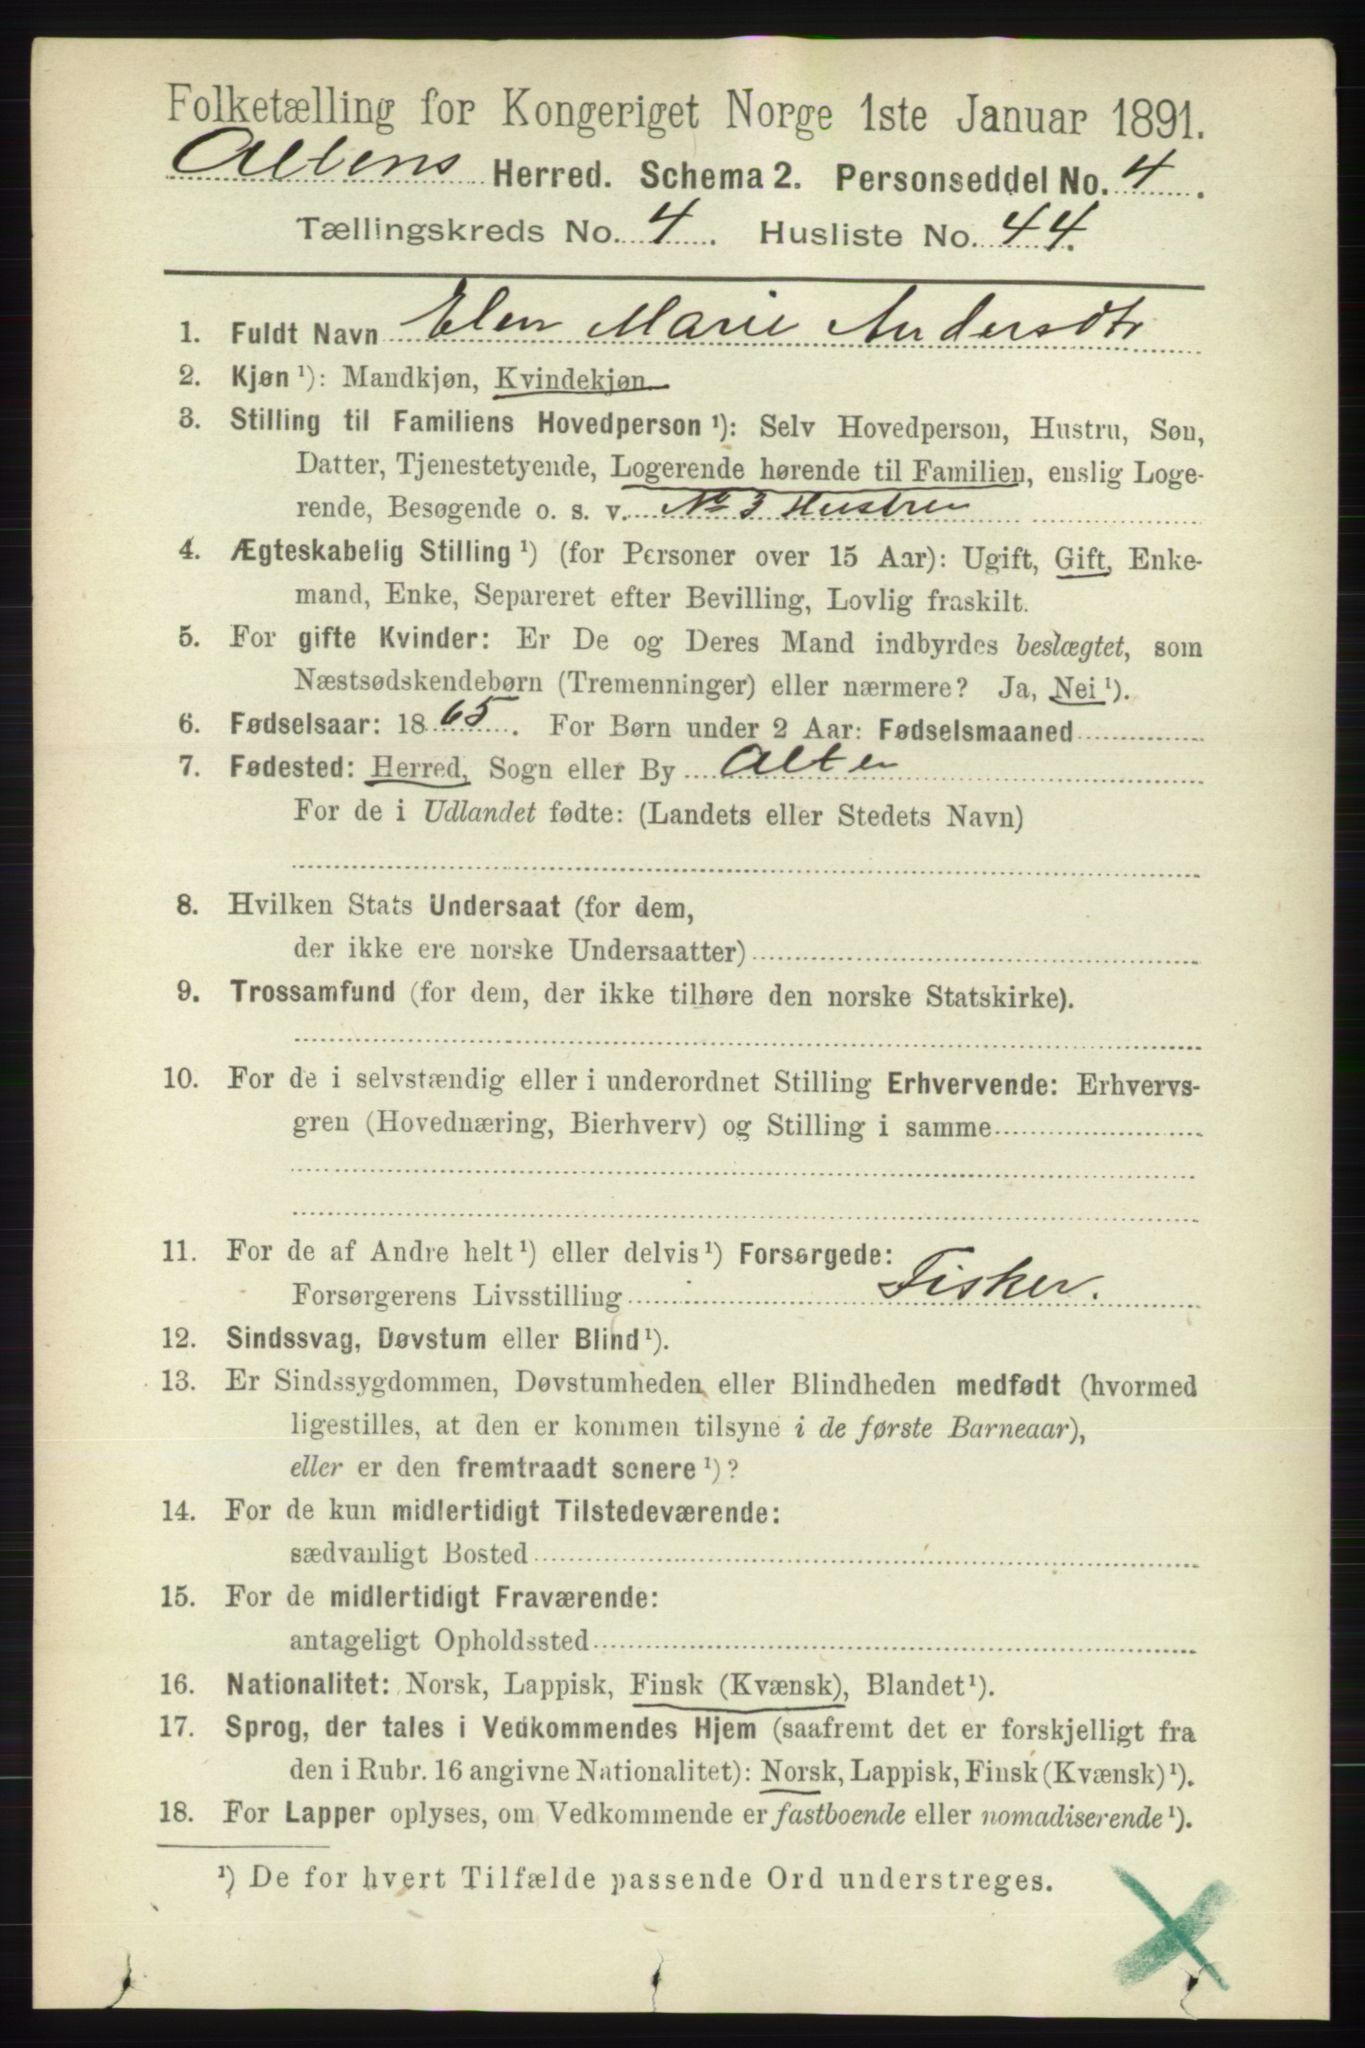 Folketælling for Kongeriget Norge 1ste Januar 1891.
Altens Herred. Schema 2. Personseddel No. 4.
Tællingskreds No. 4. Husliste No. 44.
1. Fuldt Navn Elen Marie Andersdtr
2. Kjøn ¹): Mandkjøn, Kvindekjøn
3. Stilling til Familiens Hovedperson ¹): Selv Hovedperson, Hustru, Søn,
Datter, Tjenestetyende, Logerende hørende til Familien, enslig Loge-
rende, Besøgende o. s. v. No 3 Hustru
4. Ægteskabelig Stilling ¹) (for Personer over 15 Aar): Ugift, Gift, Enke-
mand, Enke, Separeret efter Bevilling, Lovlig fraskilt.
5. For gifte Kvinder: Er De og Deres Mand indbyrdes beslægtet, som
Næstsødskendebørn (Tremenninger) eller nærmere? Ja, Nei ¹).
6. Fødselsaar: 1865. For Børn under 2 Aar: Fødselsmaaned
7. Fødested: Herred, Sogn eller By Alten
For de i Udlandet fødte: (Landets eller Stedets Navn)
8. Hvilken Stats Undersaat (for dem,
der ikke ere norske Undersaatter)
9. Trossamfund (for dem, der ikke tilhøre den norske Statskirke).
10. For de i selvstændig eller i underordnet Stilling Erhvervende: Erhvervs-
gren (Hovednæring, Bierhverv) og Stilling i samme
11. For de af Andre helt ¹) eller delvis ¹) Forsørgede:
Forsørgerens Livsstilling Fisker.
12. Sindssvag, Døvstum eller Blind ¹).
13. Er Sindssygdommen, Døvstumheden eller Blindheden medfødt (hvormed
ligestilles, at den er kommen tilsyne i de første Barneaar),
eller er den fremtraadt senere ¹)?
14. For de kun midlertidigt Tilstedeværende:
sædvanligt Bosted
15. For de midlertidigt Fraværende:
antageligt Opholdssted
16. Nationalitet: Norsk, Lappisk, Finsk (Kvænsk), Blandet ¹).
17. Sprog, der tales i Vedkommendes Hjem (saafremt det er forskjelligt fra
den i Rubr. 16 angivne Nationalitet): Norsk, Lappisk, Finsk (Kvænsk) ¹).
18. For Lapper oplyses, om Vedkommende er fastboende eller nomadiserende ¹).
¹) De for hvert Tilfælde passende Ord understreges.